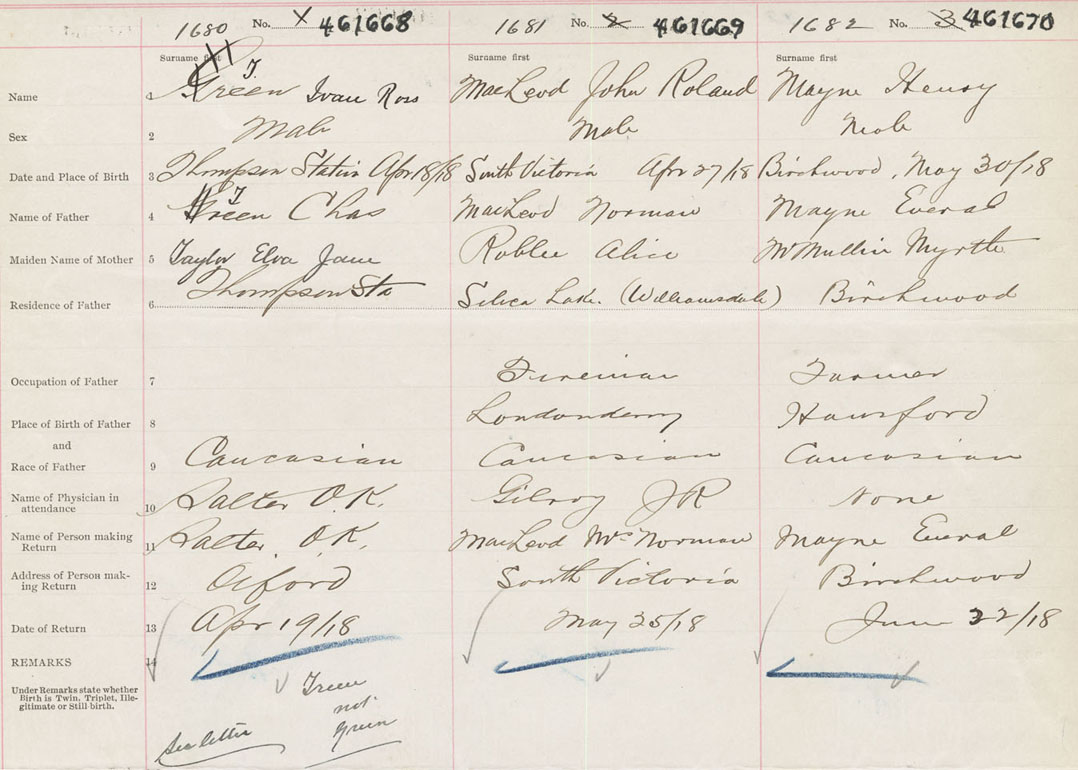 1680 No. 1 461668 1681 No. 2 461669 1682 No. 3 461670
Surname first Surname first Surname first
T.
Name 1 Green Ivan Ross MacLeod John Roland Mayne Henry
Sex 2 Male Male Male
Date and Place of Birth 3 Thompson Station Apr 18/18 South Victoria Apr 27/18 Birchwood, May 30/18
T
Name of Father 4 Green Chas MacLeod Norman Mayne Everal
Maiden Name of Mother 5 Taylor Elva Jane Roblee Alice McMullin Myrtle
Residence of Father 6 Thompson Sta Silica Lake. (Williamsdale) Birchwood
Occupation of Father 7 Fireman Farmer
Place of Birth of Father 8 Londonderry Hansford
and
Race of Father 9 Caucasian Caucasian Caucasian
Name of Physician in
attendance 10 Salter O.K. Gilroy JR None
Name of Person making
Return 11 Salter, O.K. MacLeod Mrs Norman Mayne Everal
Address of Person mak-
ing Return 12 Oxford South Victoria Birchwood
Date of Return 13 Apr 19/18 May 25/18 June 22/18
REMARKS 14
Under Remarks state whether
Birth is Twin, Triplet, Ille-
gitimate or Still-birth.
Treen
not
Green
See letter